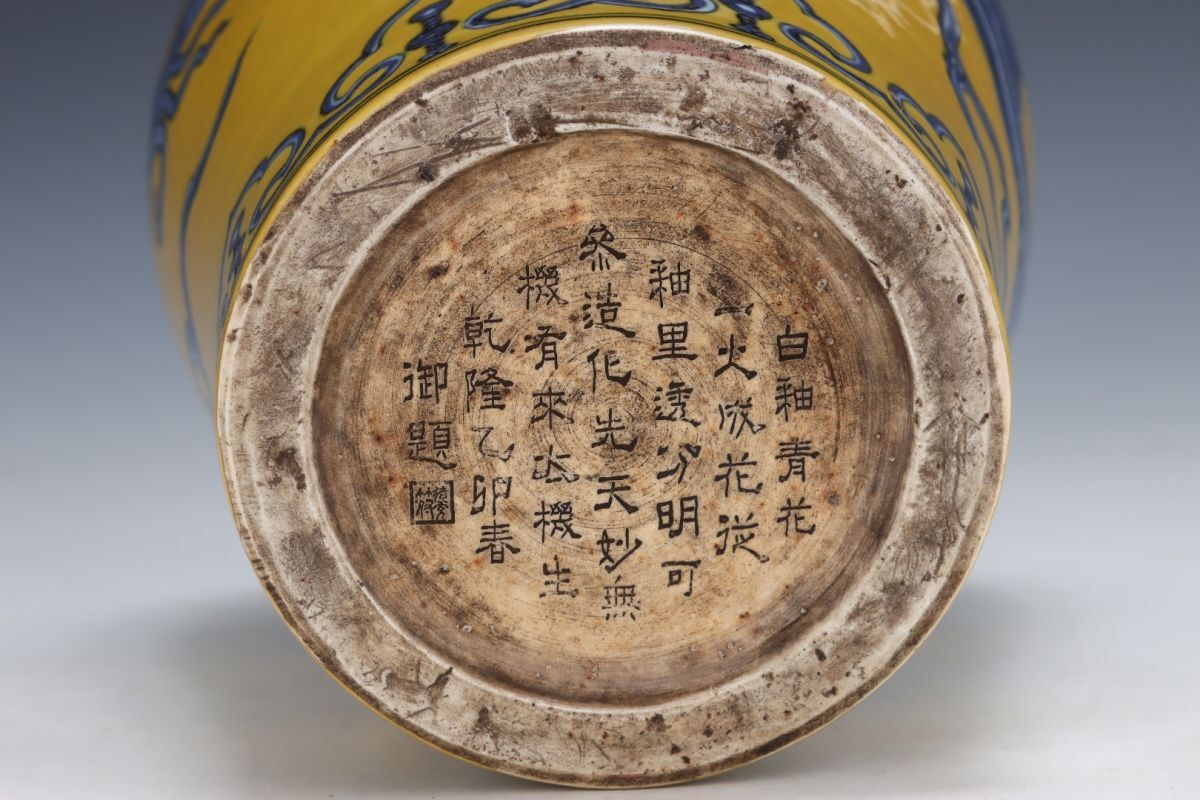 白釉青花
一火成花從
釉里透分明可
參造化先天妙無
機有來太機生
乾隆乙卯春
御題